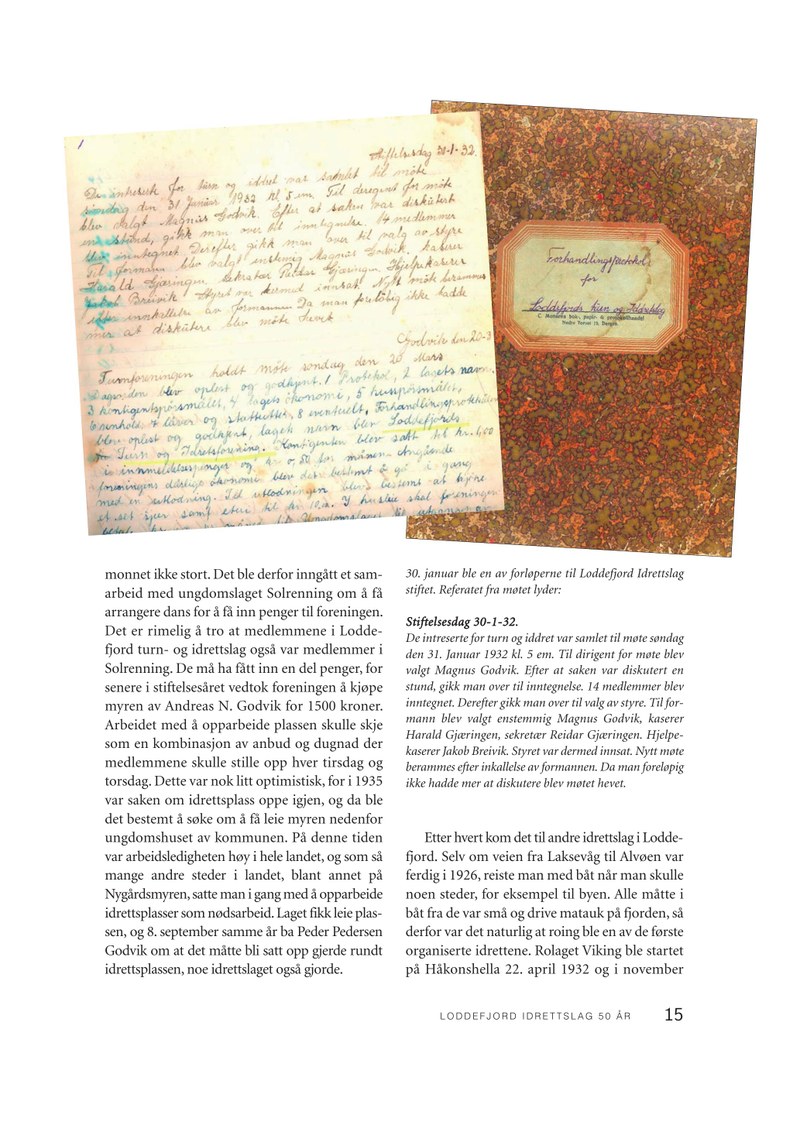 1
Stiftelsesdag 30-1-32.
De intreserte for turn og iddret var samlet til møte
søndag den 31 Januar 1932 kl 5 em. Til deregent for møte
blev valgt Magnus Godvik. Efter at saken var diskutert
en stund, gikk man over til inntegnelse. 14 medlemmer
blev inntegnet Derefter gikk man over til valg av styre
Til formann blev valgt enstemig Magnus Godvik, kaserer
Harald Gjæringen, Sekretær Reidar Gjæringen, Hjelpekaserer
Jakob Breivik. Styret var dermed innsat. Nytt møte berammes
efter innkallelse av formannen Da man foreløbig ikke hadde
mer at diskutere blev møte hevet
Godvik den 20-3
Turnforeningen holdt møte søndag den 20 Mars
Dagsorden blev oplest og godkjent. 1 Protokol, 2 lagets navn
3 kontigentspørsmålet, 4 lagets økonomi, 5 husspørsmålet,
6 7 lover og 8 eventuelt. Forhandlingsprotokollen
blev oplest og godkjent, lagets navn blev Loddefjords
Turn og Idretsforening. Kontigenten blev satt til kr. 1,00
i innmeldelsespenger og kr 0,50 for månen. Angående
foreningens dårlige økonomi blev det bestemt å gå i gang
med en utlodning. Til utlodningen blev bestemt at kjøpe
et set
Forhandlingsprotokol
for
Loddefjords turn og Idrætslag
C. Monsens bok-, papir- & protokollhandel
Nedre Torvet 10, Bergen.
monnet ikke stort. Det ble derfor inngått et sam-
arbeid med ungdomslaget Solrenning om å få
arrangere dans for å få inn penger til foreningen.
Det er rimelig å tro at medlemmene i Lodde-
fjord turn- og idrettslag også var medlemmer i
Solrenning. De må ha fått inn en del penger, for
senere i stiftelsesåret vedtok foreningen å kjøpe
myren av Andreas N. Godvik for 1500 kroner.
Arbeidet med å opparbeide plassen skulle skje
som en kombinasjon av anbud og dugnad der
medlemmene skulle stille opp hver tirsdag og
torsdag. Dette var nok litt optimistisk, for i 1935
var saken om idrettsplass oppe igjen, og da ble
det bestemt å søke om å få leie myren nedenfor
ungdomshuset av kommunen. På denne tiden
var arbeidsledigheten høy i hele landet, og som så
mange andre steder i landet, blant annet på
Nygårdsmyren, satte man i gang med å opparbeide
idrettsplasser som nødsarbeid. Laget fikk leie plas-
sen, og 8. september samme år ba Peder Pedersen
Godvik om at det måtte bli satt opp gjerde rundt
idrettsplassen, noe idrettslaget også gjorde.
30. januar ble en av forløperne til Loddefjord Idrettslag
stiftet. Referatet fra møtet lyder:
Stiftelsesdag 30-1-32.
De intreserte for turn og iddret var samlet til møte søndag
den 31. Januar 1932 kl. 5 em. Til dirigent for møte blev
valgt Magnus Godvik. Efter at saken var diskutert en
stund, gikk man over til inntegnelse. 14 medlemmer blev
inntegnet. Derefter gikk man over til valg av styre. Til for-
mann blev valgt enstemmig Magnus Godvik, kaserer
Harald Gjæringen, sekretær Reidar Gjæringen. Hjelpe-
kaserer Jakob Breivik. Styret var dermed innsat. Nytt møte
berammes efter inkallelse av formannen. Da man foreløpig
ikke hadde mer at diskutere blev møtet hevet.
Etter hvert kom det til andre idrettslag i Lodde-
fjord. Selv om veien fra Laksevåg til Alvøen var
ferdig i 1926, reiste man med båt når man skulle
noen steder, for eksempel til byen. Alle måtte i
båt fra de var små og drive matauk på fjorden, så
derfor var det naturlig at roing ble en av de første
organiserte idrettene. Rolaget Viking ble startet
på Håkonshella 22. april 1932 og i november
LODDEFJORD IDRETTSLAG 50 ÅR 15